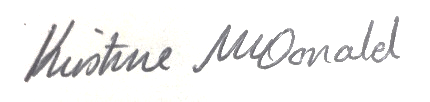 Kirstine McDonald